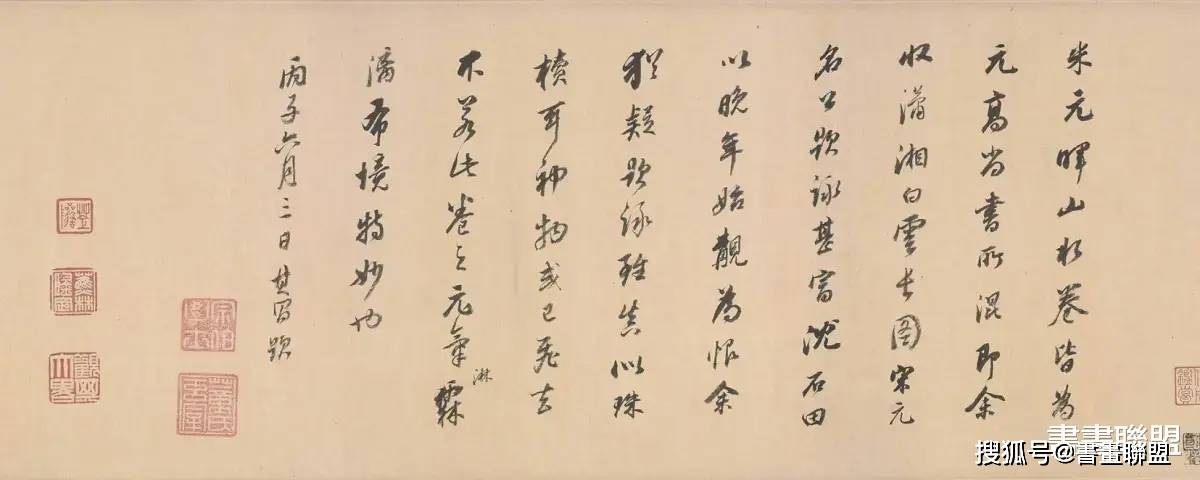 米元暉山水卷皆為
元高尚書所混即余
收瀟湘白雲長图宋元
名公題詠甚富沈石田
以晚年始覯為恨余
猶疑題詠雖真似珠
櫝耳神物或已飛去
不若此卷之元氣淋
霖
潘希境特妙也
丙子六月三日其昌題
書畫聯盟
搜狐号@書畫聯盟